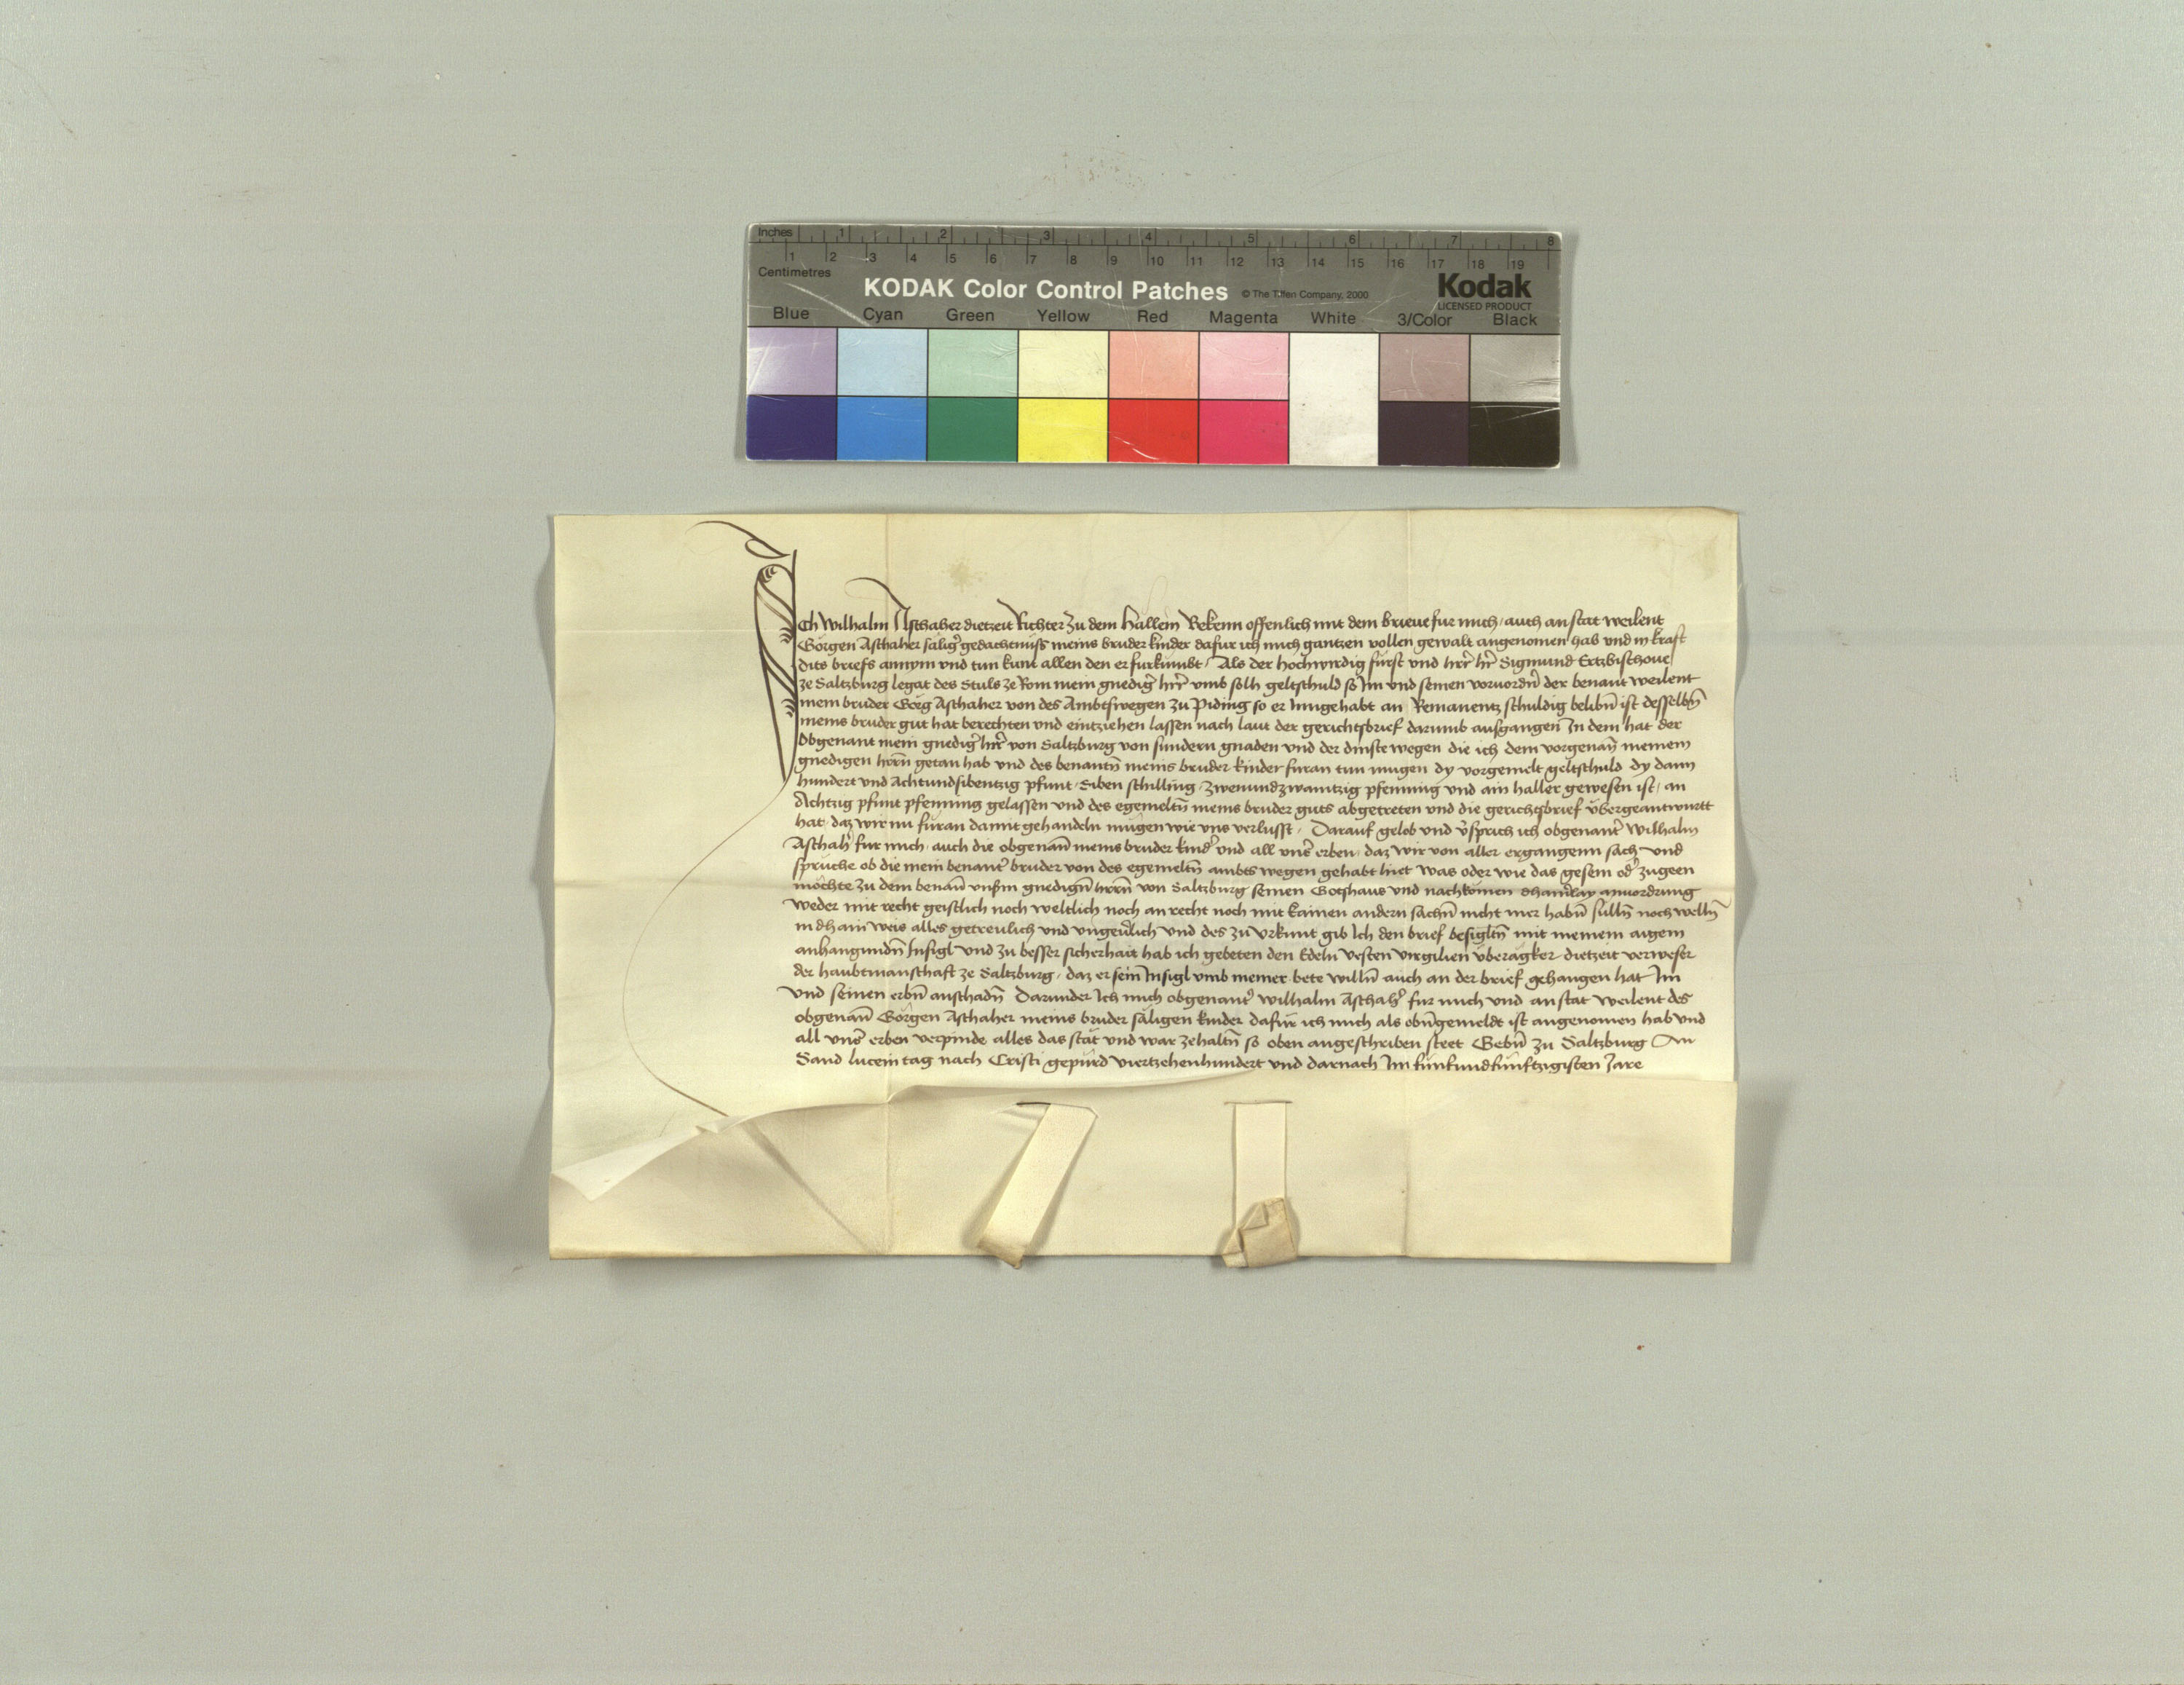 Inches 1 2 3 4 5 6 7 8
1 2 3 4 5 6 7 8 9 10 11 12 13 14 15 16 17 18 19
Centimetres
KODAK Color Control Patches © The Tiffen Company, 2000 Kodak
LICENSED PRODUCT
Blue Cyan Green Yellow Red Magenta White 3/Color Black
Ich Wilhalm Aschaher dietzeit Richter zu dem Hallein Bekenn offenlich mit dem brieue fur mich / auch anstat weilent
Görgen Aschaher sälig̛ gedachtnüss meins bruder kinder dafur ich mich gantzen vollen gewalt angenomen hab vnd in kraft
dits briefs annym vnd tun kunt allen den er furkumbt / Als der hochwirdig fürst vnd hrr̄ hr̄ Sigmund Ertzbischoue
ze Saltzburg legat des Stuls ze Rom mein gnedig̛ hrr̄ vmb solh geltschuld so Im vnd seinen voruordn̄ der benant weilent
mein bruder Görg Aschaher von des Ambtswegen zu Piding so er Inngehabt an Remanentz schuldig belibn̄ ist desselbn̄
meins bruder gut hat berechten vnd eintziehen lassen nach laut der gerichtsbrief darumb ausgangen In dem hat der
Obgenant mein gnedig̛ hrr̄ von Saltzburg von sundern gnaden vnd der dinste wegen die ich dem vorgenan̄ meinem
gnedigen hrrn̄ getan hab vnd des benantn̄ meins bruder kinder furan tun mugen dy vorgemelt geltschuld dy dann
hundert vnd Achtundsibentzig pfunt / Siben schilling / zwenundzwaintzig pfenning vnd ain haller gewesen ist / an
Achtzig pfunt pfenning gelassen vnd des egemeltn̄ meins bruder guts abgetreten vnd die gerichtsbrief übergeantwurtt
hat / daz wir nu füran damit gehandeln mügen wie vns verlusst / Darauf gelob vnd v̛sprich ich obgenant̛ Wilhalm
Aschah̛ fur mich / auch die obgenan̄ meins bruder kind̛ vnd all vns̛ erben / daz wir von aller ergangenn sach vnd
sprüche ob die mein benant̛ bruder von des egemeltn̄ ambts wegen gehabt hiet was oder wie das gesein od̛ zugeen
möchte zu dem benan̄ vnsm̄ gnedign̄ hrrn̄ von Saltzburg seinen Gotshaus vnd nachkomen dhainerlay anuordrung
weder mit recht geistlich noch weltlich noch an recht noch mit kainen andern sachn̄ nicht mer habn̄ sülln̄ noch welln̄
in dhain weis alles getreulich vnd vngeưlich vnd des zu vrkunt gib Ich den brief besigltn̄ mit meinem aigem
anhangundn̄ Insigl vnd zu besser sicherhait hab ich gebeten den Edeln vesten virgilien überagker dietzeit verweser
der haubtmanschaft ze Saltzburg / daz er sein Insigl vmb meiner bete willn̄ auch an der brief gehangen hat Im
vnd seinen erbn̄ anschadn̄ Darunder Ich mich obgenant̛ Wilhalm Aschah̛ fur mich vnd anstat weilent des
obgenan̄ Görgen Aschaher meins bruder säligen kinder dafür ich mich als obn̄gemeldt ist angenomen hab vnd
all vns̛ erben verpinde alles das stät vnd war zehaltn̄ so oben angeschriben steet Gebn̄ zu Saltzburg An
Sand lucein tag nach Cristi gepürd viertzehenhundert vnd darnach Im fünfundfünftzigisten Jare